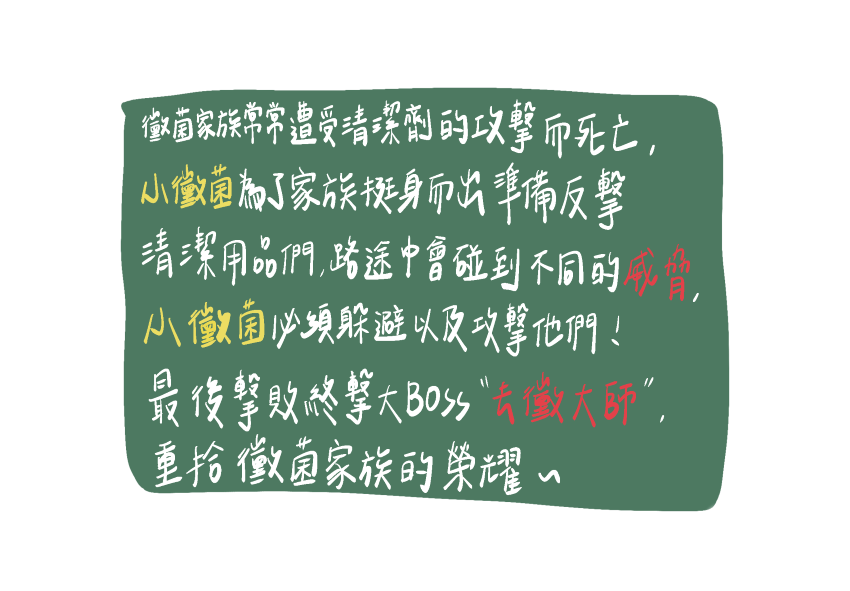 黴菌家族常常遭受清潔劑的攻擊而死亡,
小黴菌為了家族挺身而出準備反擊
清潔用品們,路途中會碰到不同的威脅,
小黴菌必須躲避以及攻擊他們!
最後擊敗終擊大Boss"去黴大師",
重拾黴菌家族的榮耀~